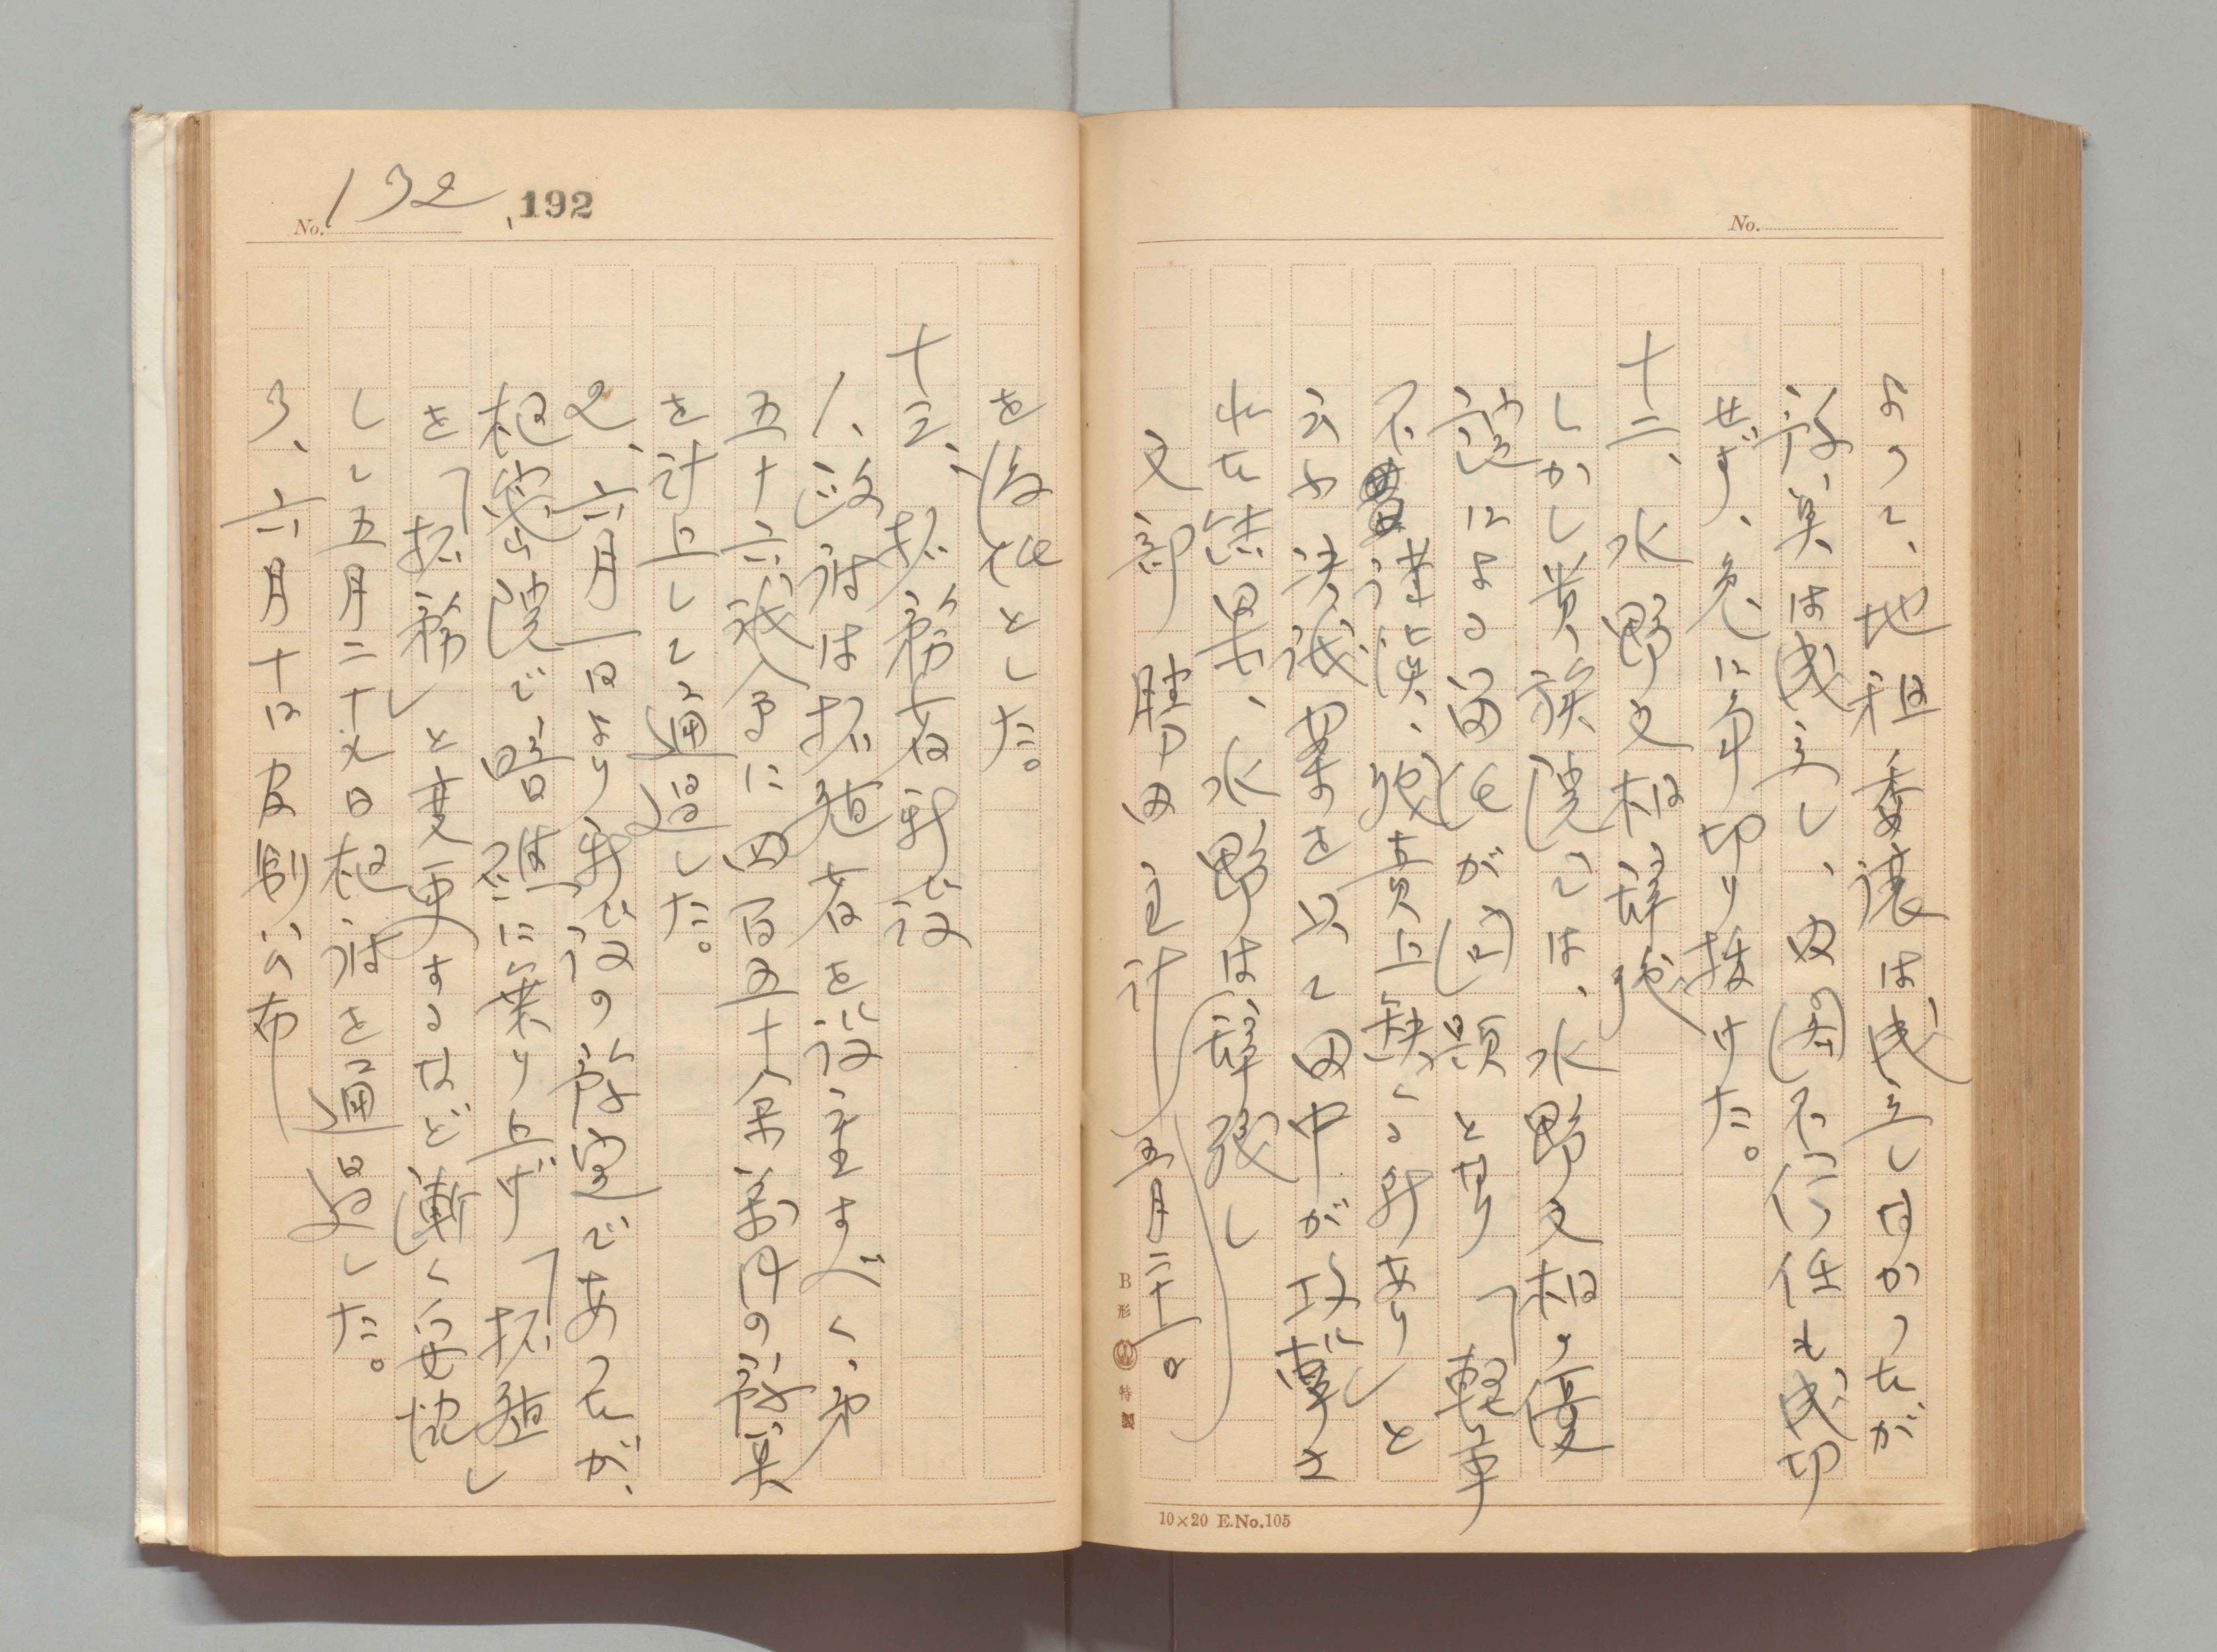 No.
よって、地租委譲は成立しなかったが
予算は成立し、田（内）不信任も成功
せず、兎に角切り抜けた。
十二、水野文相辞職
しかし貴族院では、水野文相の優
諚による留任が問題と萼り「軽率
不謹慎、職責上欠くる所あり」と
云ふ決議案を以て田中が攻撃さ
れた結果、水野は辞職し
文部 勝田主計 五月二十五。
B形 特製
10×20 E.No.105
No. 132 192
を後任とした。
十三、拓務省新設
1、政府は拓殖省を設置すべく、第
五十六議会に四百五十余万円の予算
を計上して通過した。
2、六月一日より新設の予定であったが、
枢密院で暗礁に乗り上げ「拓殖」
を「拓務」と変更するなど漸く妥協
して五月二十九日枢府を通過した。
3、六月十日官制公布